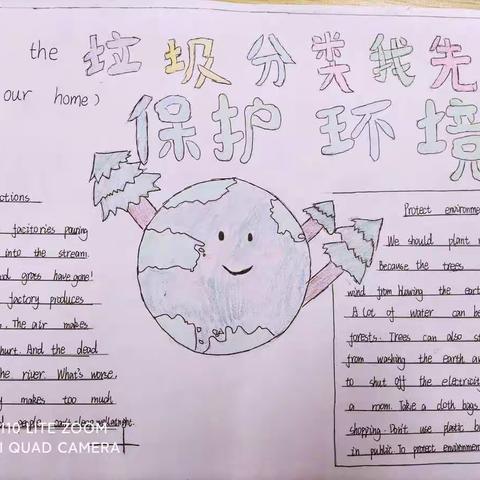 the 垃圾分类我先
our home)
保护环境
ctions
facitories pouring
into the stream.
nd grass have gone!
factory produces
. The air makes
hurt. And the dead
he river. What's worse,
y makes too much
! people can't sleep well at night.
Protect environme
We should plant
Because the trees
wind from blawing the eart
A lot of water can be
forests. Trees can also st
from washing the earth aw
to shut off the eletricity
a room. Take a cloth bags
shopping. Don't use plastic b
in public. To protect environmen
10 LITE ZOOM
I QUAD CAMERA